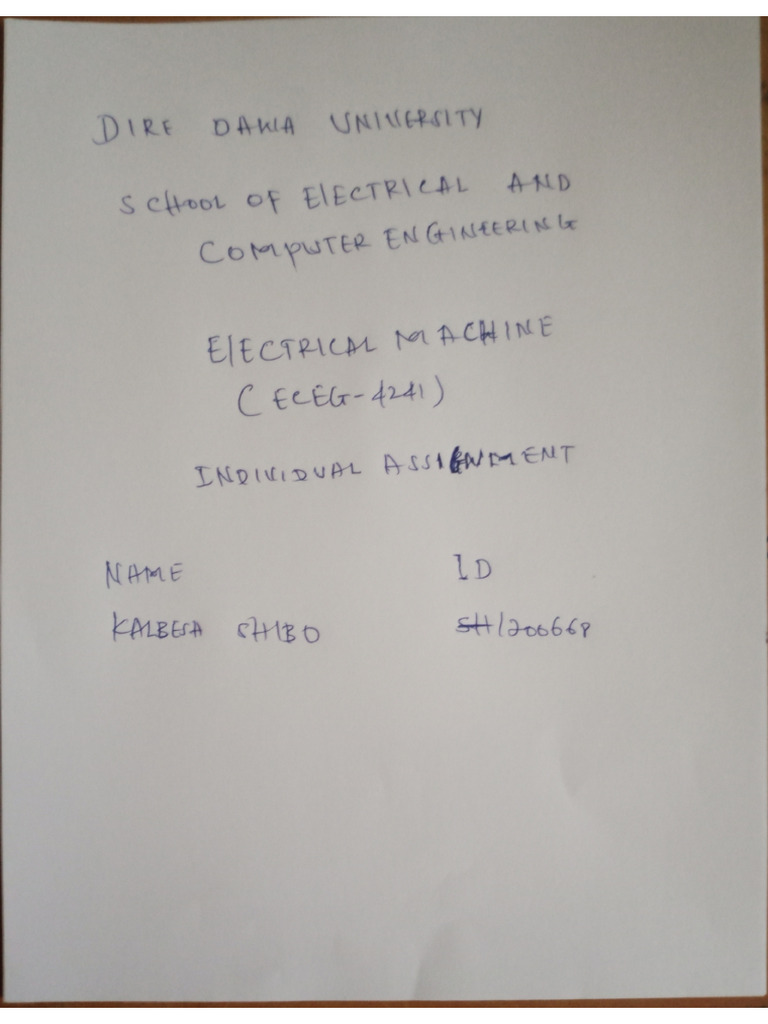 DIRE DAWA UNIVERSITY
SCHOOL OF ElECTRICAL AND
COMPUTER ENGINEERING
ElECTRICAL MACHINE
(ECEG-4241)
INDIVIDUAL ASSIGNMENT
NAME ID
KALBESA SHIBO SH/200668